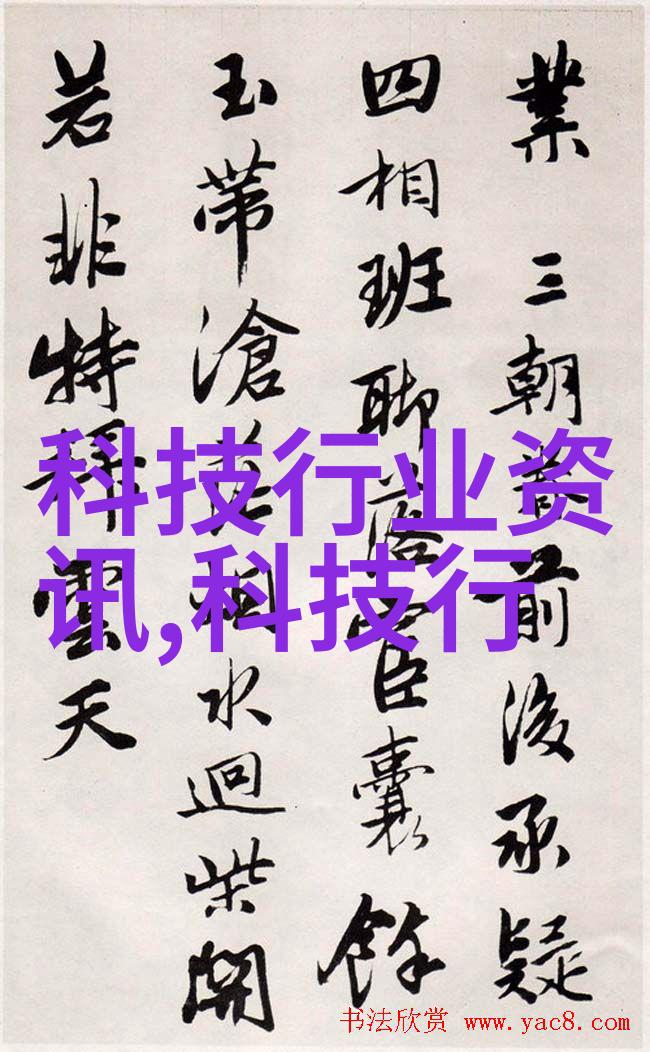 業 三朝前後承疑
四相班聊落宦囊餘
玉帶滄茫烟水迴柴開
若非特拜雲天
科技行业资
讯,科技行
书法欣赏 www.yac8.com